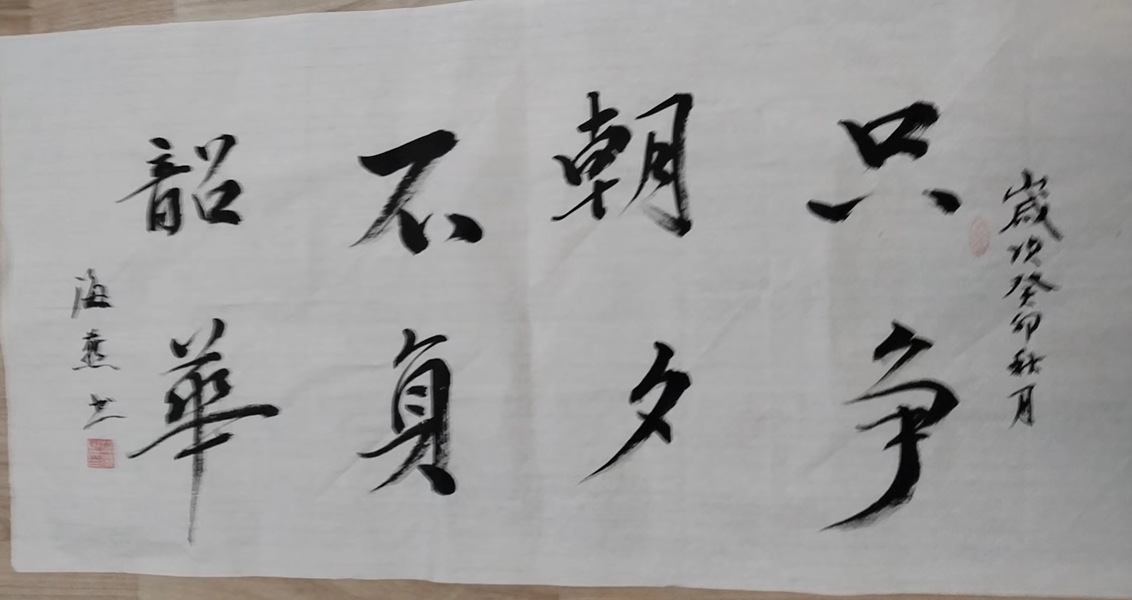 歲次癸卯秋月
只争
朝夕
不負
韶華
海燕书